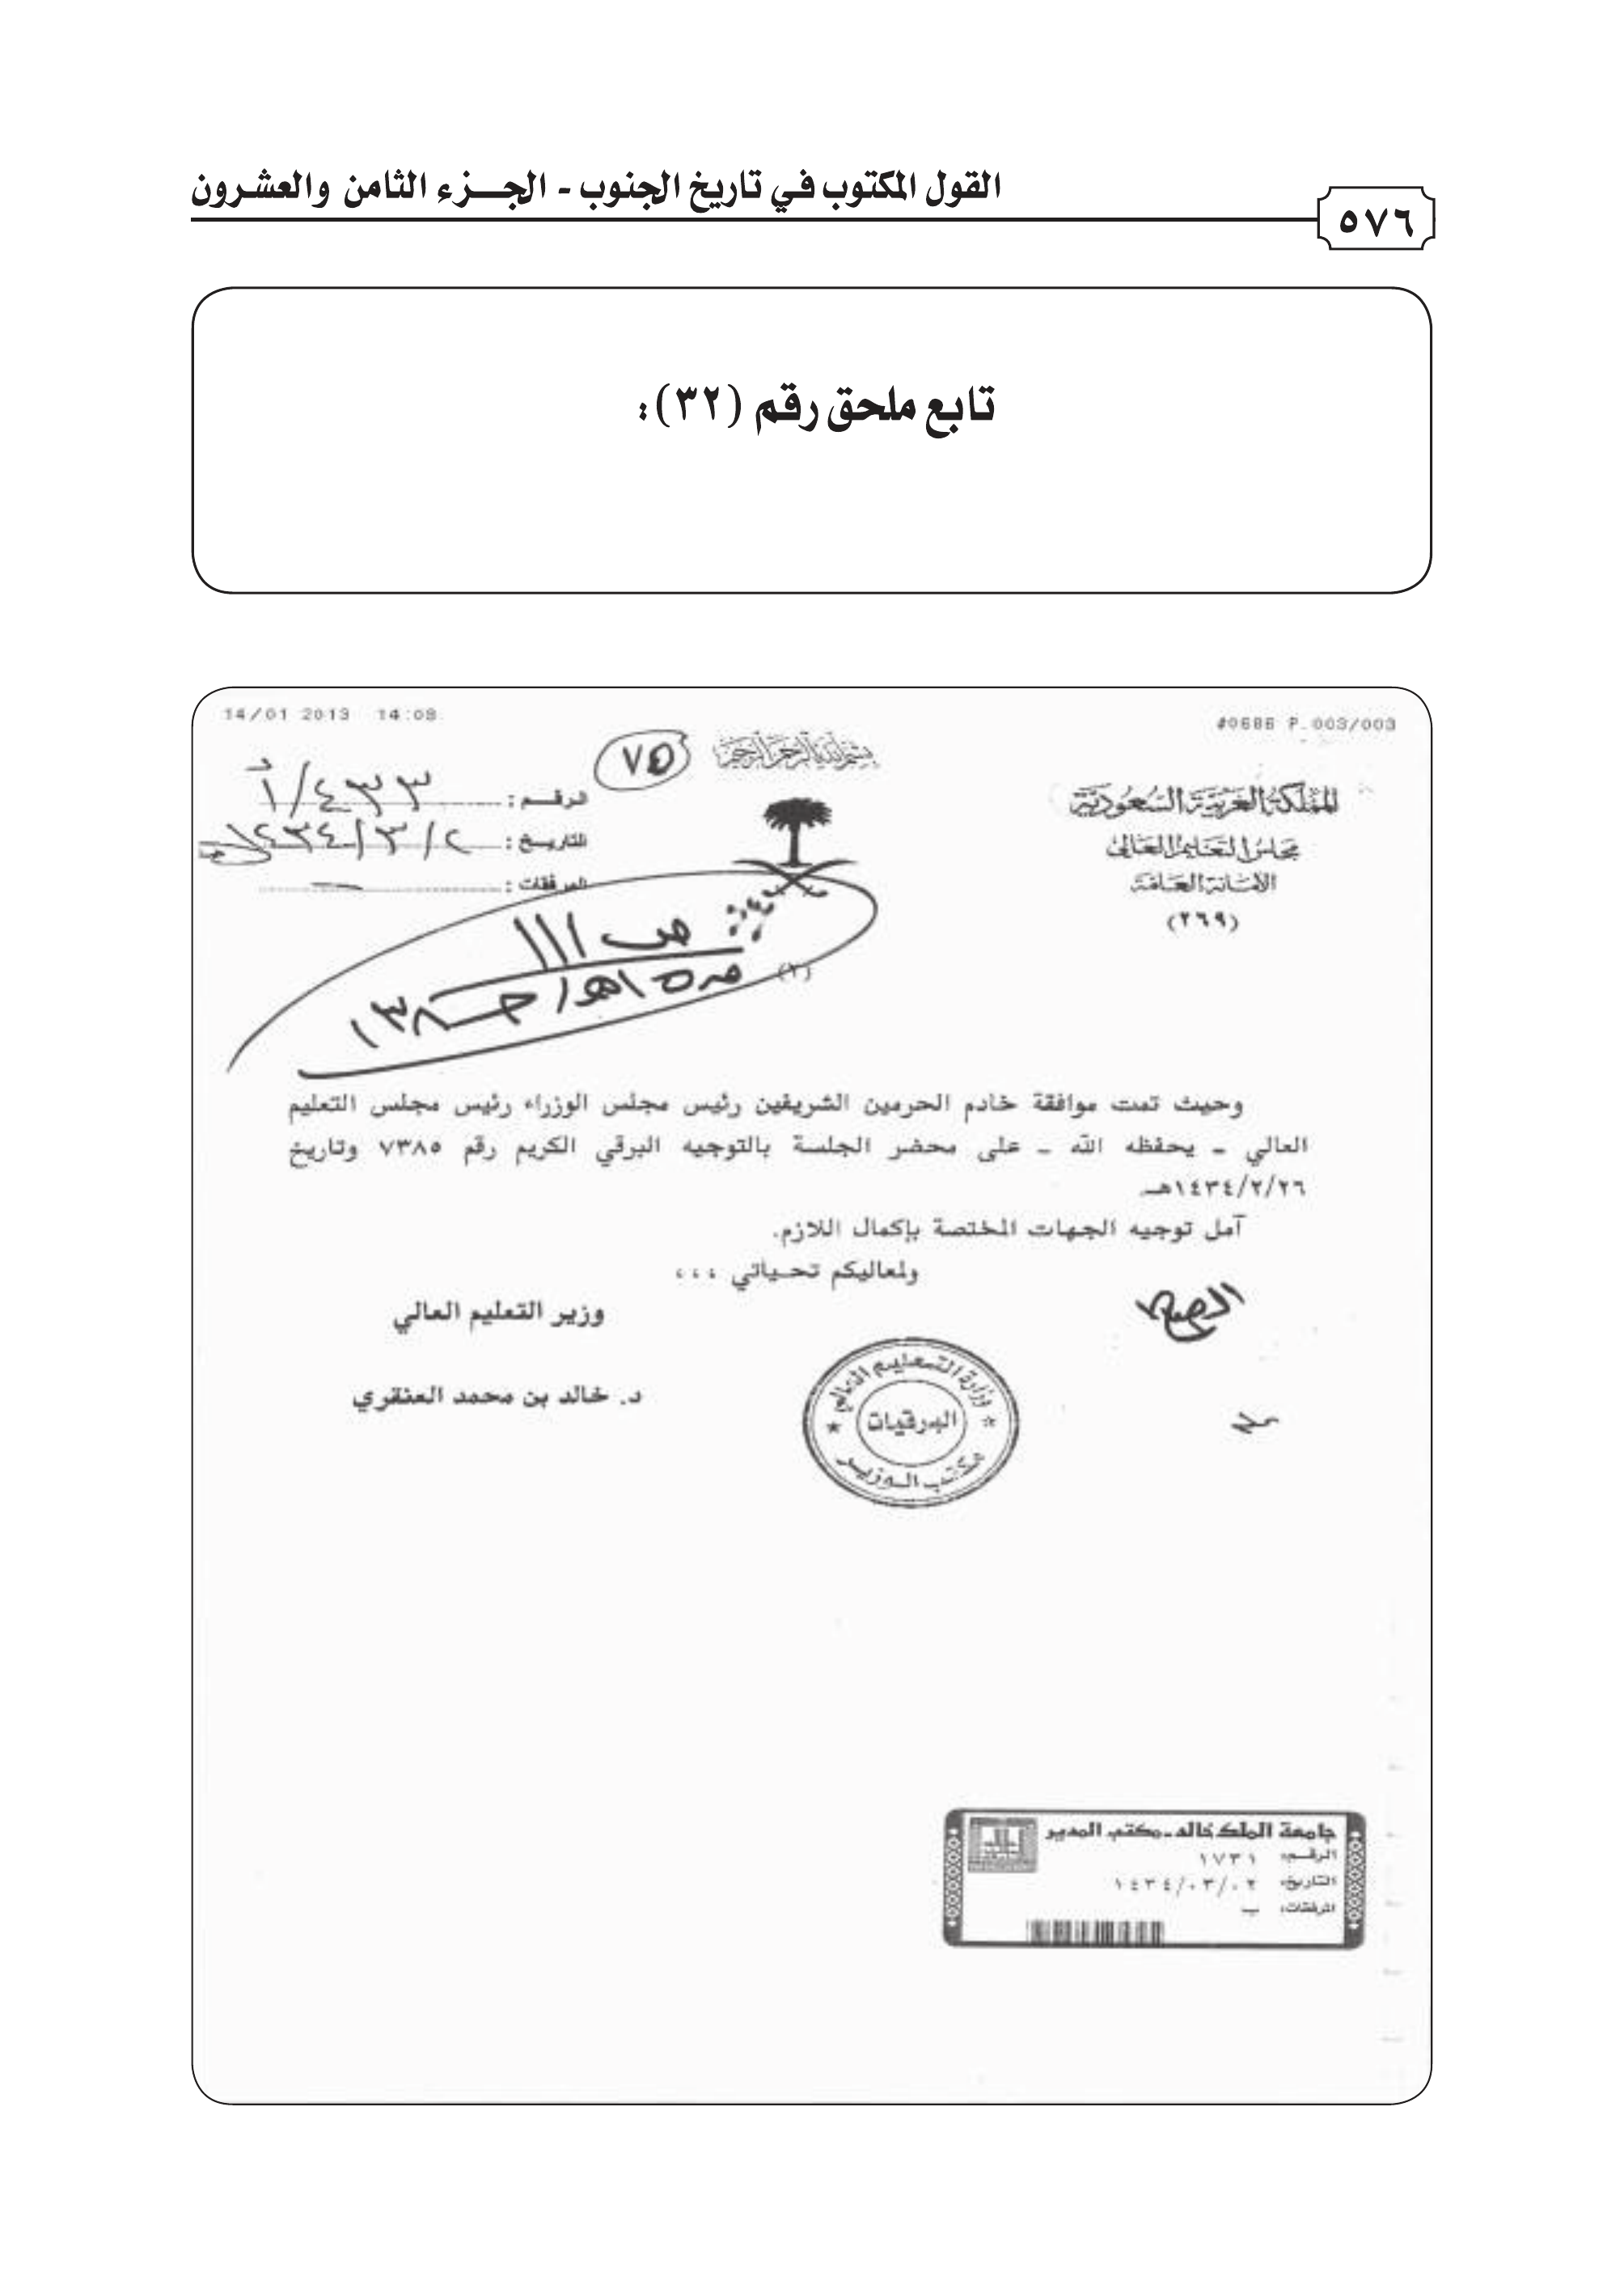 القول المكتوب في تاريخ الجنوب - الجـــزء الثامن والعشـرون
٥٧٦
تابع ملحق رقم (٣٢):
14/01 2013 14:08
#0686 P.003/003
بسم الله الرحمن الرحيم
٧٥
المملكة العربية السعودية
مجلس التعليم العالي
الأمانة العامة
(٢٦٩)
الرقـم : ٤٣٣/أ
التاريـخ : ٢/٣/١٤٣٤هـ
المرفقات :
ص ١١١
(٢)
وحيث تمت موافقة خادم الحرمين الشريفين رئيس مجلس الوزراء رئيس مجلس التعليم
العالي - يحفظه الله - على محضر الجلسة بالتوجيه البرقي الكريم رقم ٧٣٨٥ وتاريخ
١٤٣٤/٢/٢٦هـ
آمل توجيه الجهات المختصة بإكمال اللازم.
ولمعاليكم تحـياتي ،،،
وزير التعليم العالي
د. خالد بن محمد العنقري
وزارة التـعـليـم العالي
البرقيات
مكتب الـوزيـر
جامعة الملك خالد-مكتب المدير
الرقم: ١٧٣١
التاريخ: ١٤٣٤/٠٣/٠٢
المرفقات: ب